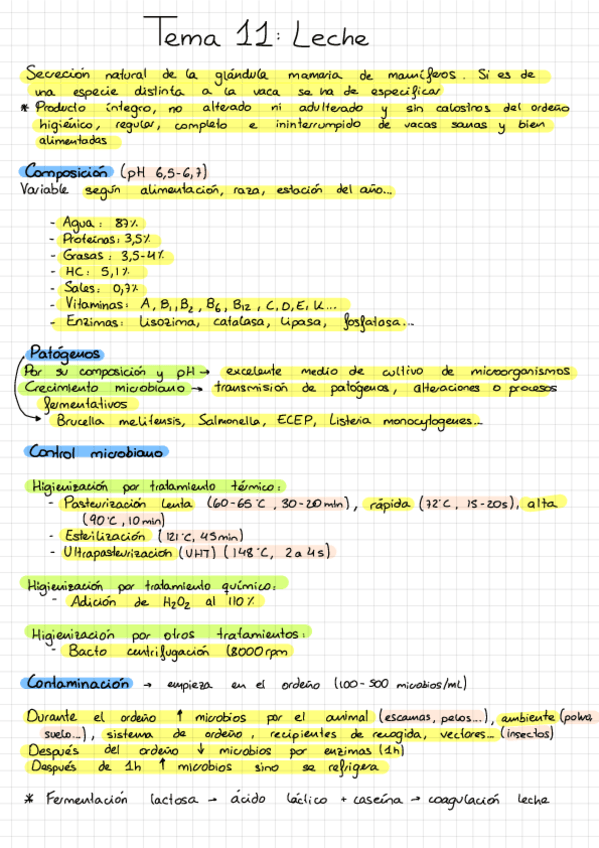 Tema 11: Leche
Secreción natural de la glándula mamaria de mamíferos. Si es de
una especie distinta a la vaca se ha de especificar
* Producto íntegro, no alterado ni adulterado y sin calostros del ordeño
higiénico, regular, completo e ininterrumpido de vacas sanas y bien
alimentadas
Composición (pH 6,5-6,7)
Variable según alimentación, raza, estación del año...
- Agua: 87%
- Proteínas: 3,5%
- Grasas: 3,5-4%
- HC: 5,1%
- Sales: 0,7%
- Vitaminas: A, B1, B2, B6, B12, C, D, E, K...
- Enzimas: Lisozima, catalasa, lipasa, fosfatasa...
Patógenos
Por su composición y pH → excelente medio de cultivo de microorganismos
Crecimiento microbiano → transmisión de patógenos, alteraciones o procesos
fermentativos
Brucella melitensis, Salmonella, ECEP, Listeria monocytogenes...
Control microbiano
Higienización por tratamiento térmico:
- Pasteurización lenta (60-65°C, 30-20min), rápida (72°C, 15-20s), alta
(90°C, 10 min)
- Esterilización (121°C, 45min)
- Ultrapasteurización (UHT) (148°C, 2 a 4s)
Higienización por tratamiento químico:
- Adición de H2O2 al 110%
Higienización por otros tratamientos:
- Bacto centrifugación (8000rpm
Contaminación → empieza en el ordeño (100-500 microbios/mL)
Durante el ordeño ↑ microbios por el animal (escamas, pelos...), ambiente (polvo,
suelo...), sistema de ordeño, recipientes de recogida, vectores... (insectos)
Después del ordeño ↓ microbios por enzimas (1h)
Después de 1h ↑ microbios sino se refrigera
* Fermentación lactosa → ácido láctico + caseína → coagulación leche